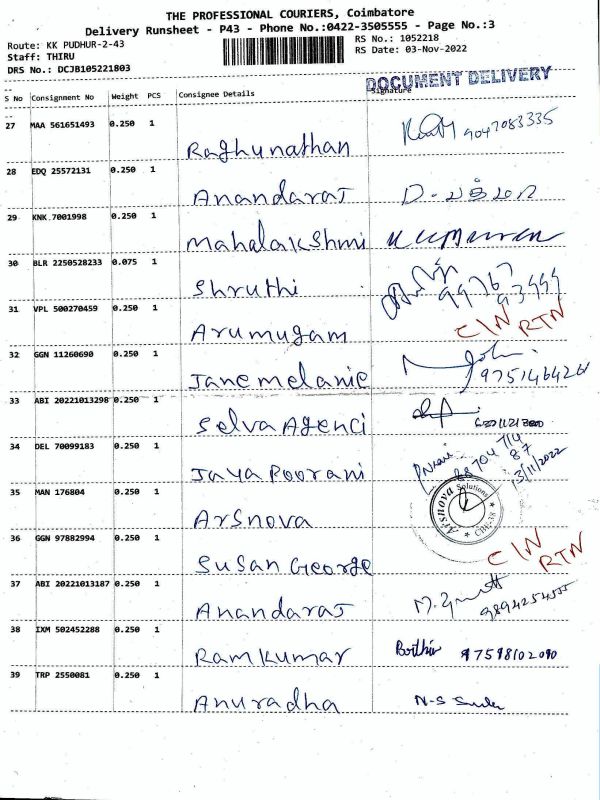 THE PROFESSIONAL COURIERS, Coimbatore
Delivery Runsheet - P43 - Phone No.:0422-3505555 - Page No.:3
Route: KK PUDHUR-2-43
Staff: THIRU
DRS No.: DCJB105221803
RS No.: 1052218
RS Date: 03-Nov-2022
DOCUMENT DELIVERY
S No Consignment No Weight PCS Consignee Details Signature
27 MAA 561651493 0.250 1 Raghunathan 9047083335
28 EDQ 25572131 0.250 1 Anandaraj
29 KNK 7001998 0.250 1 Mahalakshmi
30 BLR 2250528233 0.075 1 Shruthi
31 VPL 500270459 0.250 1 Arumugam C/N RTN
32 GGN 11260690 0.250 1 Jane melanie John 9751464261
33 ABI 20221013298 0.250 1 Selva Agenci
34 DEL 70099183 0.250 1 Jaya Poorani
35 MAN 176804 0.250 1 Arsnova Arsnova Solutions CBE-38
36 GGN 97882994 0.250 1 Susan George C/N RTN
37 ABI 20221013187 0.250 1 Anandaraj
38 IXM 502452288 0.250 1 Ram Kumar
39 TRP 2550081 0.250 1 Anuradha N-S